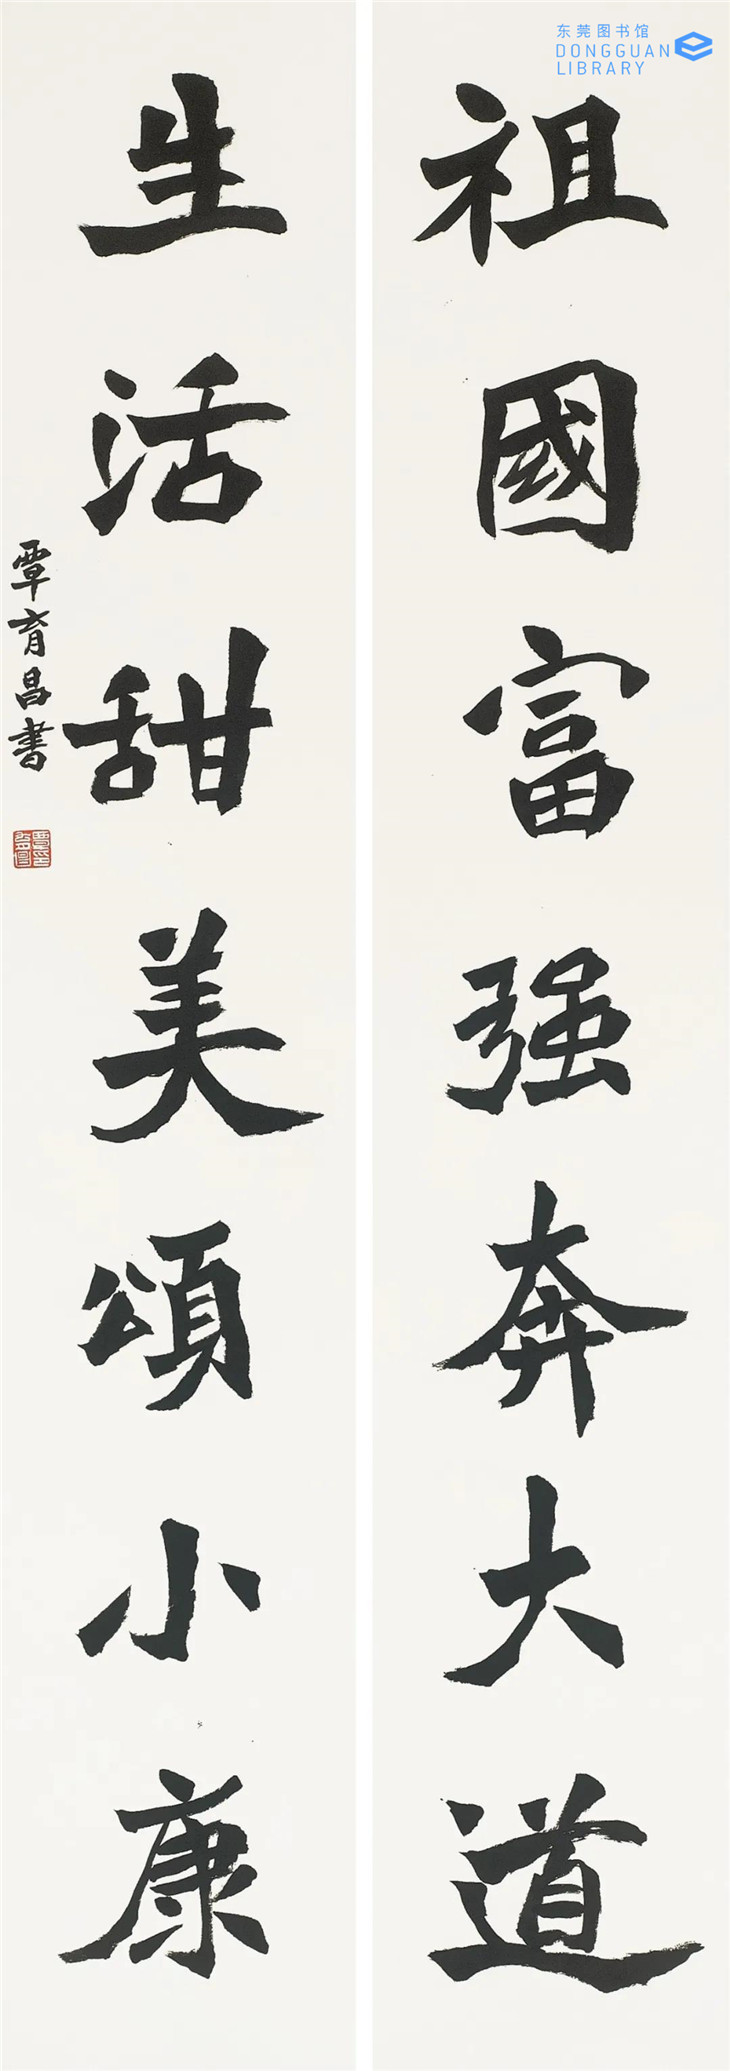 东莞图书馆
DONGGUAN
LIBRARY
祖國富强奔大道
生活甜美頌小康
覃育昌書